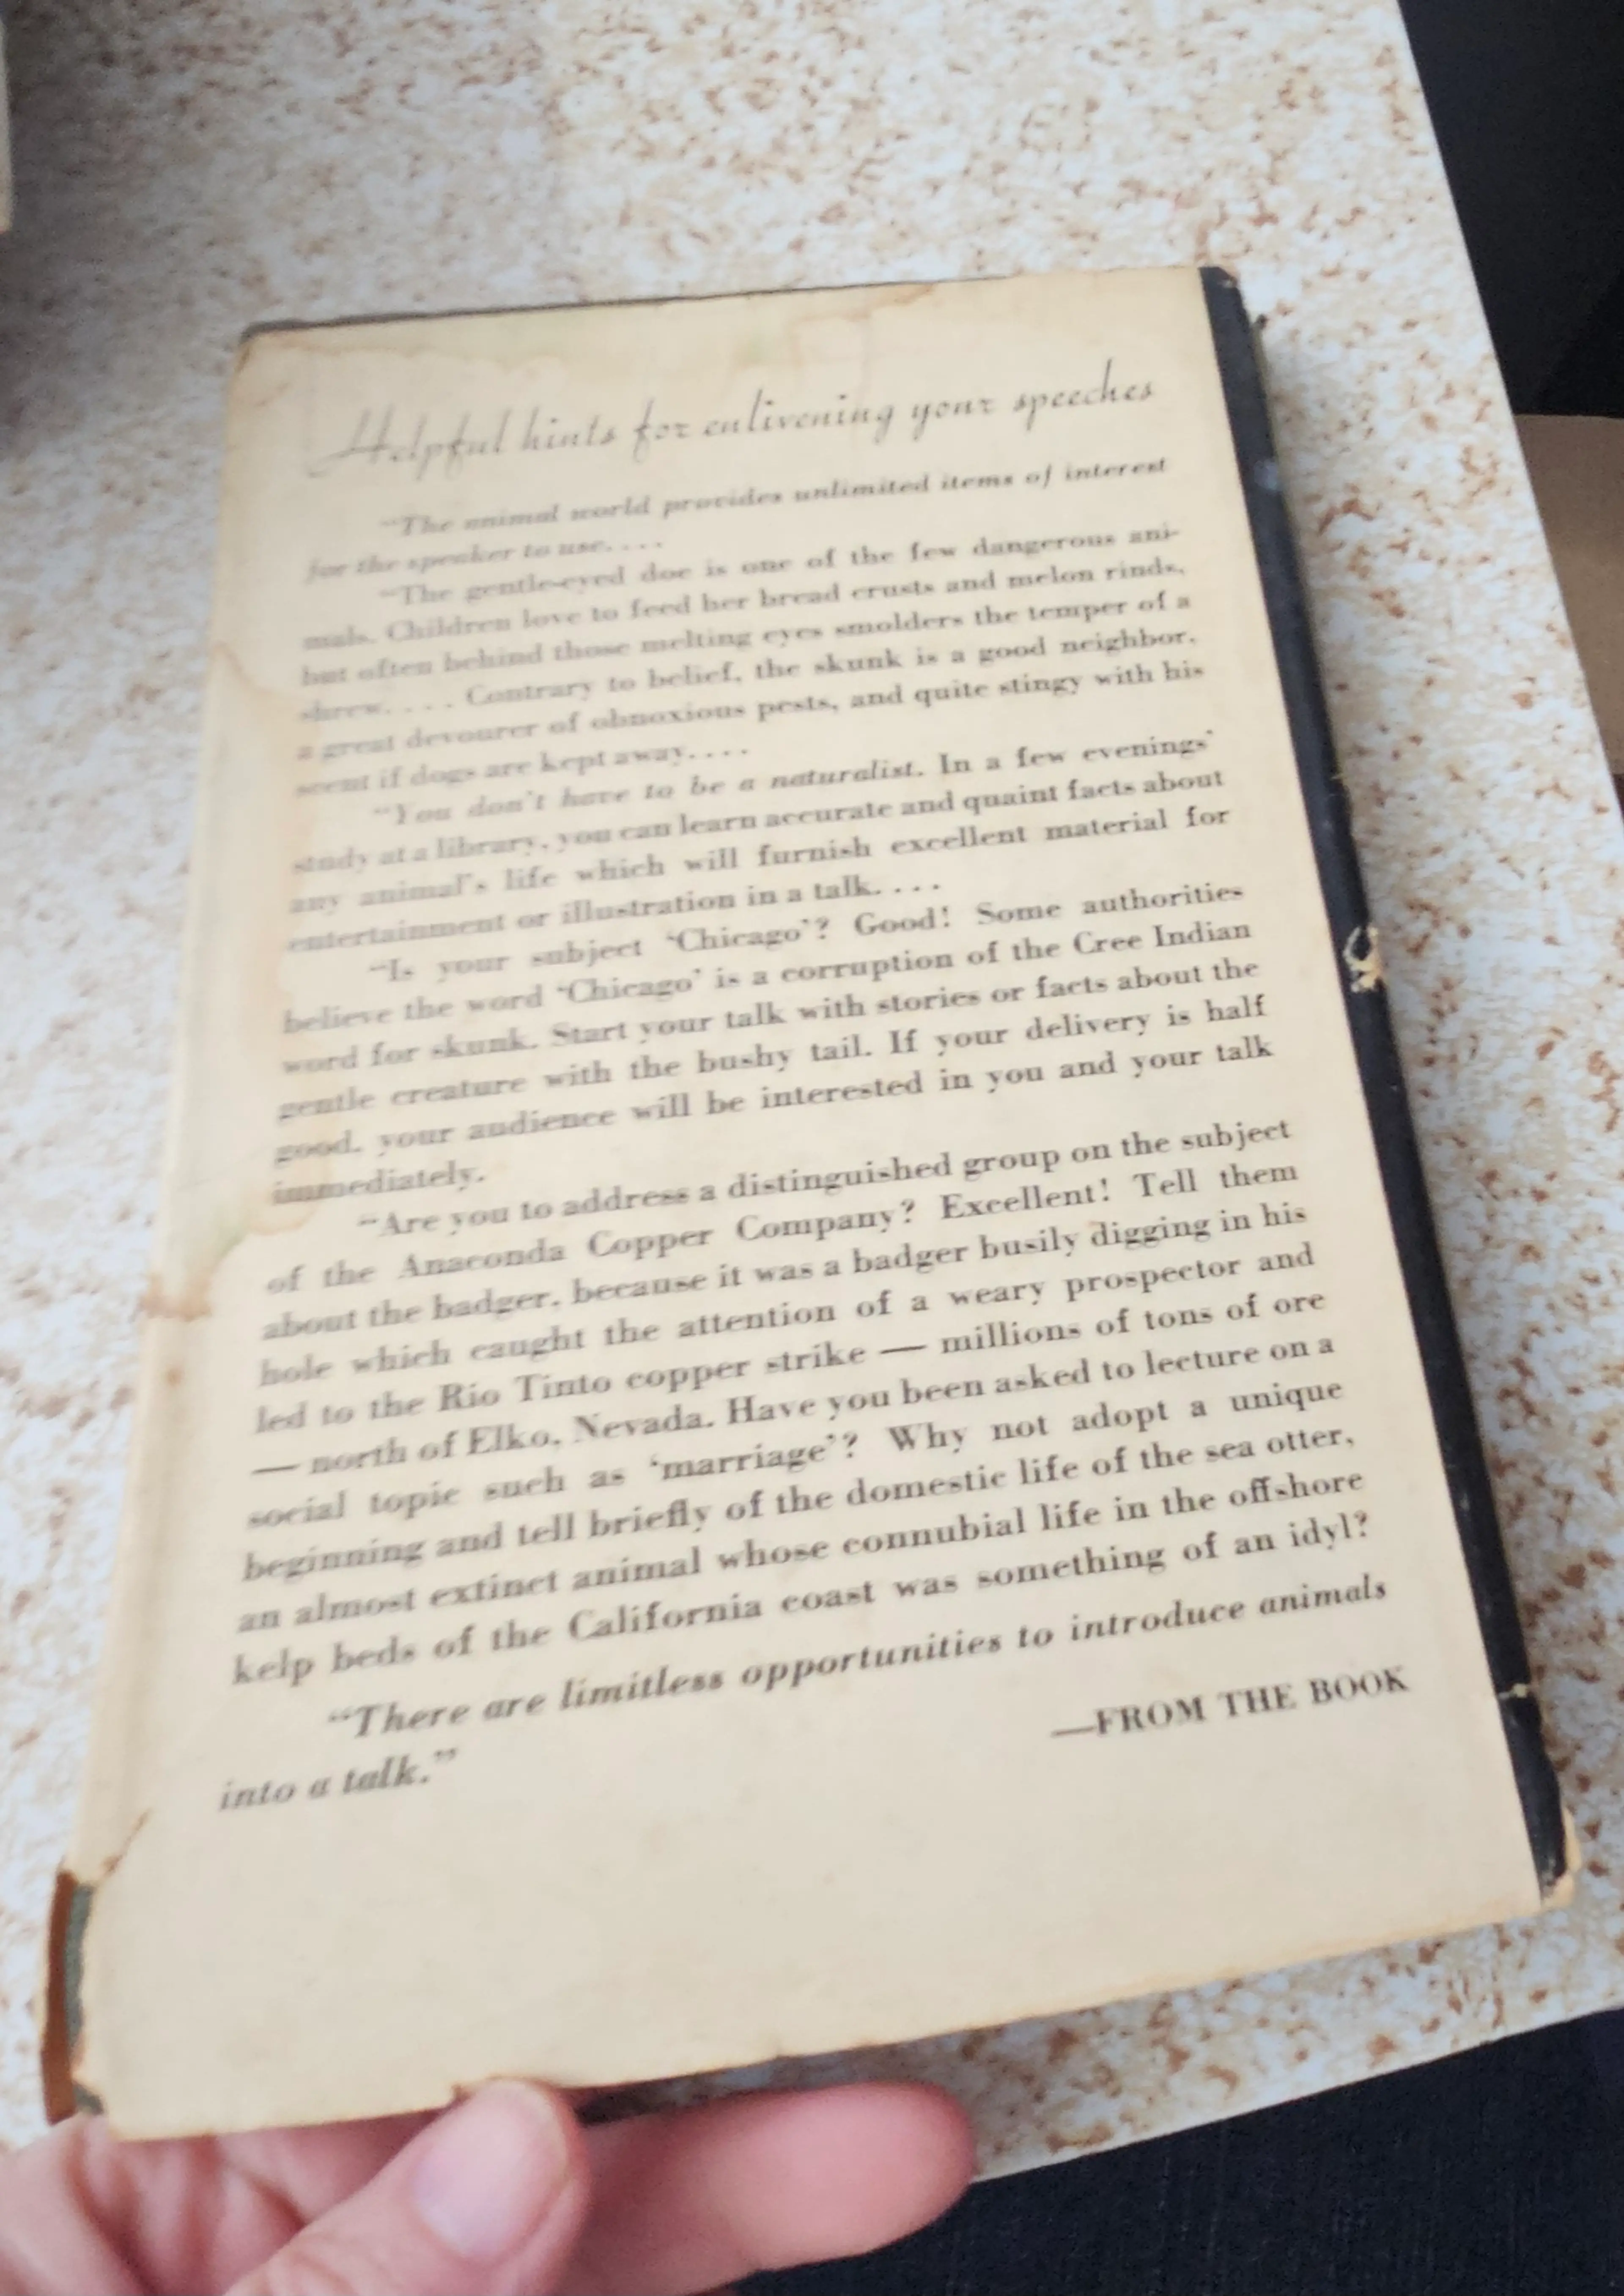 Helpful hints for enlivening your speeches
"The animal world provides unlimited items of interest
for the speaker to use. . . .
"The gentle-eyed doe is one of the few dangerous ani-
mals. Children love to feed her bread crusts and melon rinds,
but often behind those melting eyes smolders the temper of a
shrew. . . . Contrary to belief, the skunk is a good neighbor,
a great devourer of obnoxious pests, and quite stingy with his
scent if dogs are kept away. . . .
"You don't have to be a naturalist. In a few evenings'
study at a library, you can learn accurate and quaint facts about
any animal's life which will furnish excellent material for
entertainment or illustration in a talk. . . .
"Is your subject 'Chicago'? Good! Some authorities
believe the word 'Chicago' is a corruption of the Cree Indian
word for skunk. Start your talk with stories or facts about the
gentle creature with the bushy tail. If your delivery is half
good, your audience will be interested in you and your talk
immediately.
"Are you to address a distinguished group on the subject
of the Anaconda Copper Company? Excellent! Tell them
about the badger, because it was a badger busily digging in his
hole which caught the attention of a weary prospector and
led to the Rio Tinto copper strike — millions of tons of ore
— north of Elko, Nevada. Have you been asked to lecture on a
social topic such as 'marriage'? Why not adopt a unique
beginning and tell briefly of the domestic life of the sea otter,
an almost extinct animal whose connubial life in the offshore
kelp beds of the California coast was something of an idyl?
"There are limitless opportunities to introduce animals
into a talk."
—FROM THE BOOK